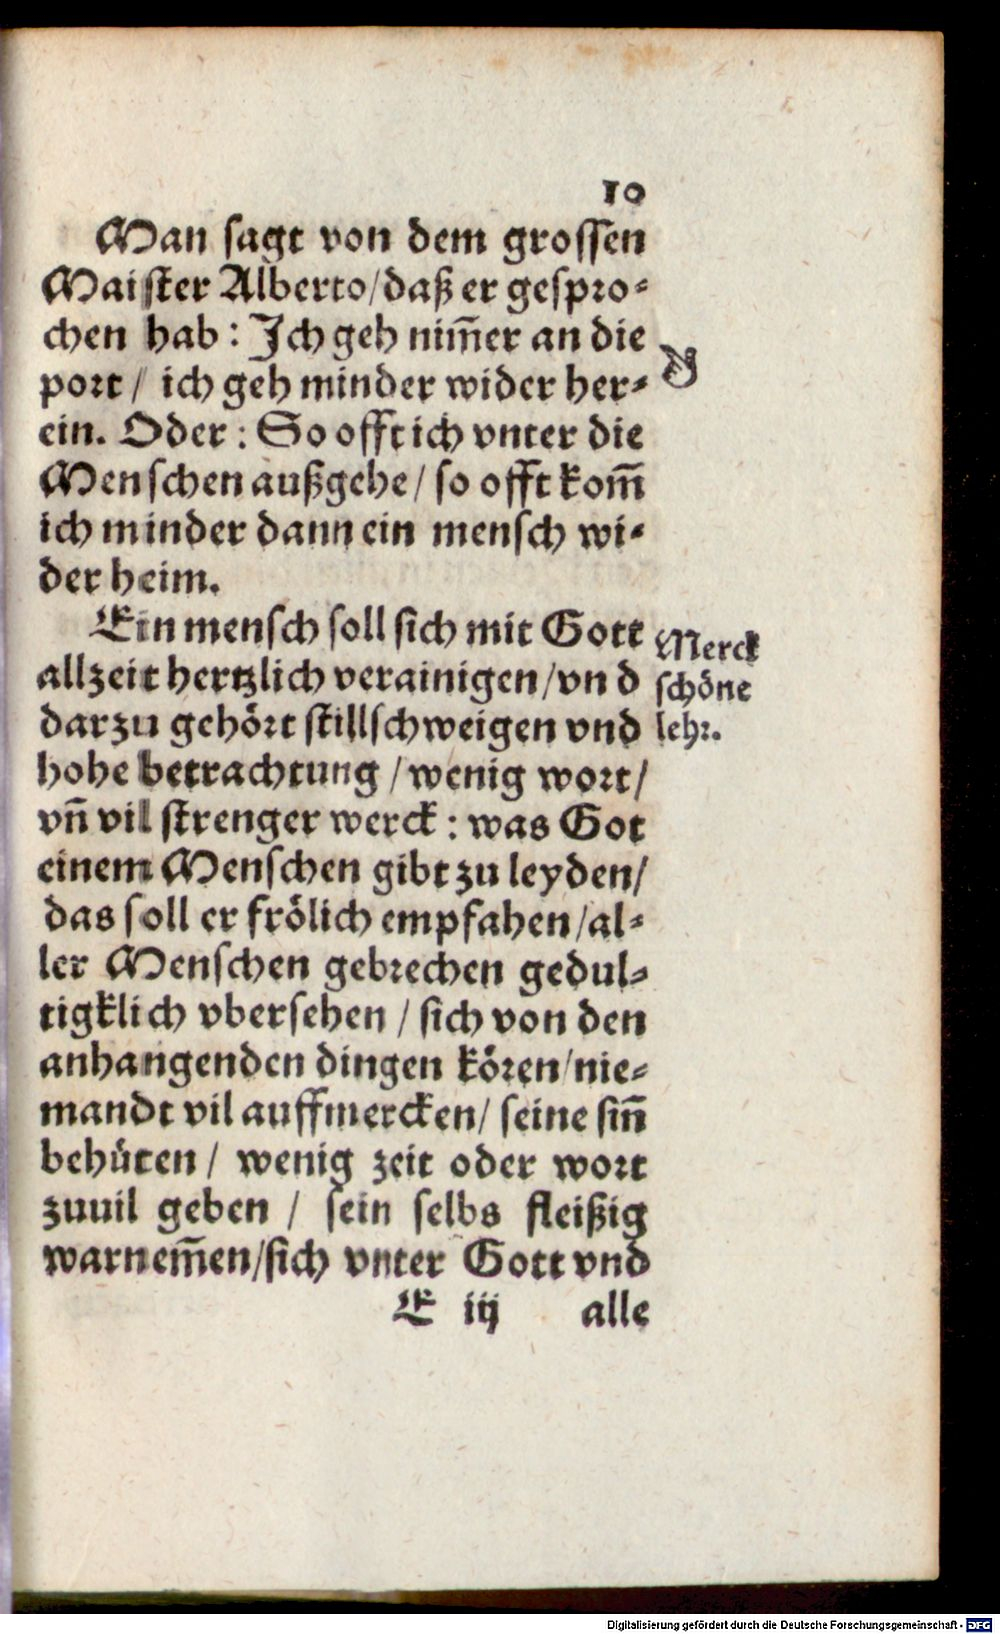 10
Man sagt von dem grossen
Maister Alberto/daß er gespro-
chen hab: Ich geh nim̅er an die
port/ ich geh minder wider her-
ein. Oder: So offt ich vnter die
Menschen außgehe/ so offt kom̅
ich minder dann ein mensch wi-
der heim.
Ein mensch soll sich mit Gott
allzeit hertzlich verainigen/vnd
darzu gehört stillschweigen vnd
hohe betrachtung /wenig wort/
vn̅ vil strenger werck: was Got
einem Menschen gibt zu leyden/
das soll er frölich empfahen/al-
ler Menschen gebrechen gedul-
tigklich vbersehen / sich von den
anhangenden dingen kören/nie-
mandt vil auffmercken/ seine sin̅
behüten / wenig zeit oder wort
zuuil geben / sein selbs fleißig
warnem̅en/sich vnter Gott vnd
E iij alle
Merck
schöne
lehr.
Digitalisierung gefördert durch die Deutsche Forschungsgemeinschaft - DFG